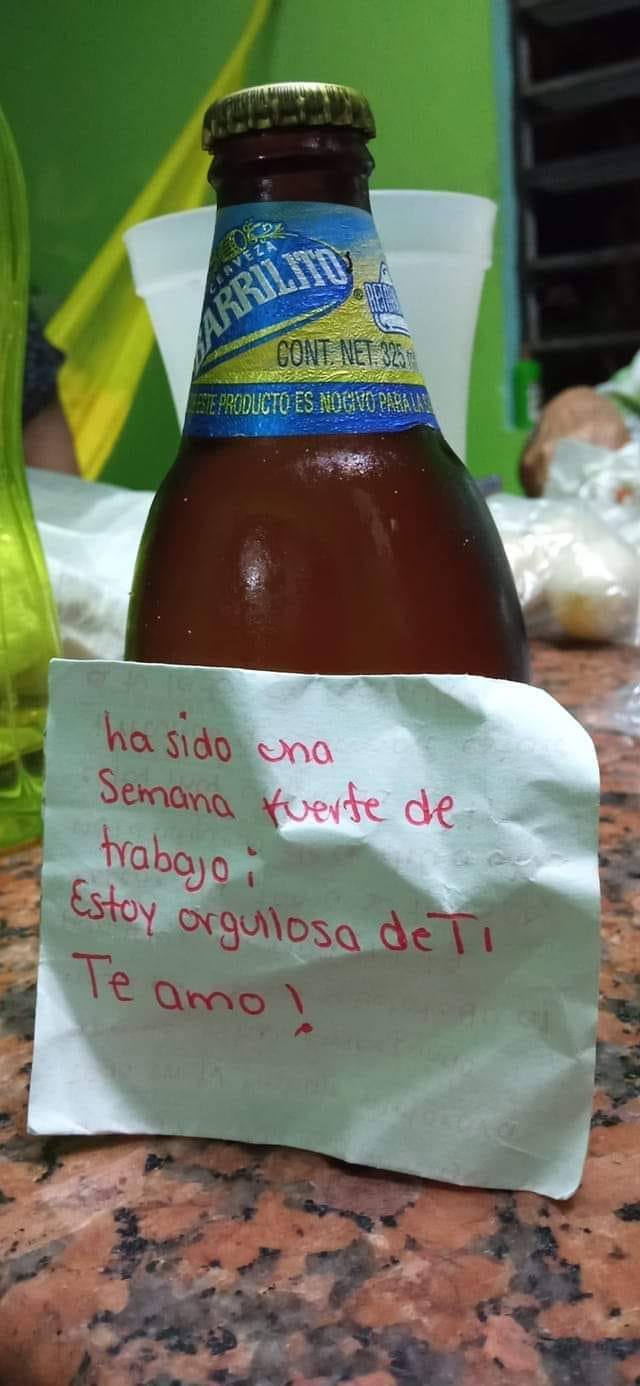 CERVEZA
BARRILITO
®
CONT. NET. 325 m
ESTE PRODUCTO ES NOCIVO PARA LA S
ha sido una
Semana fuerte de
trabajo ¡
Estoy orgullosa de Ti
Te amo !